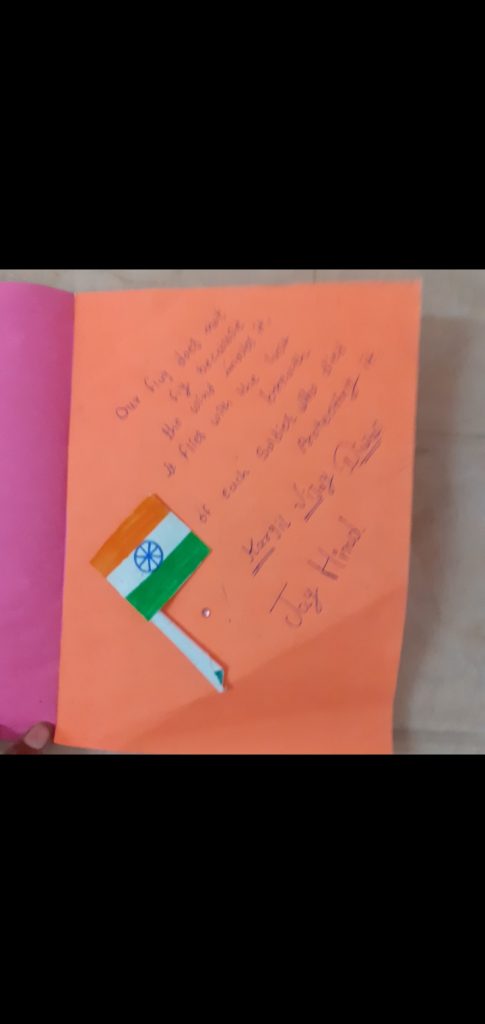 Our flag does not
fly because
the wind moves it.
It flies with the last
breath
of each soldier who died
Protecting it
Kargil Vijay Diwas
Jay Hind